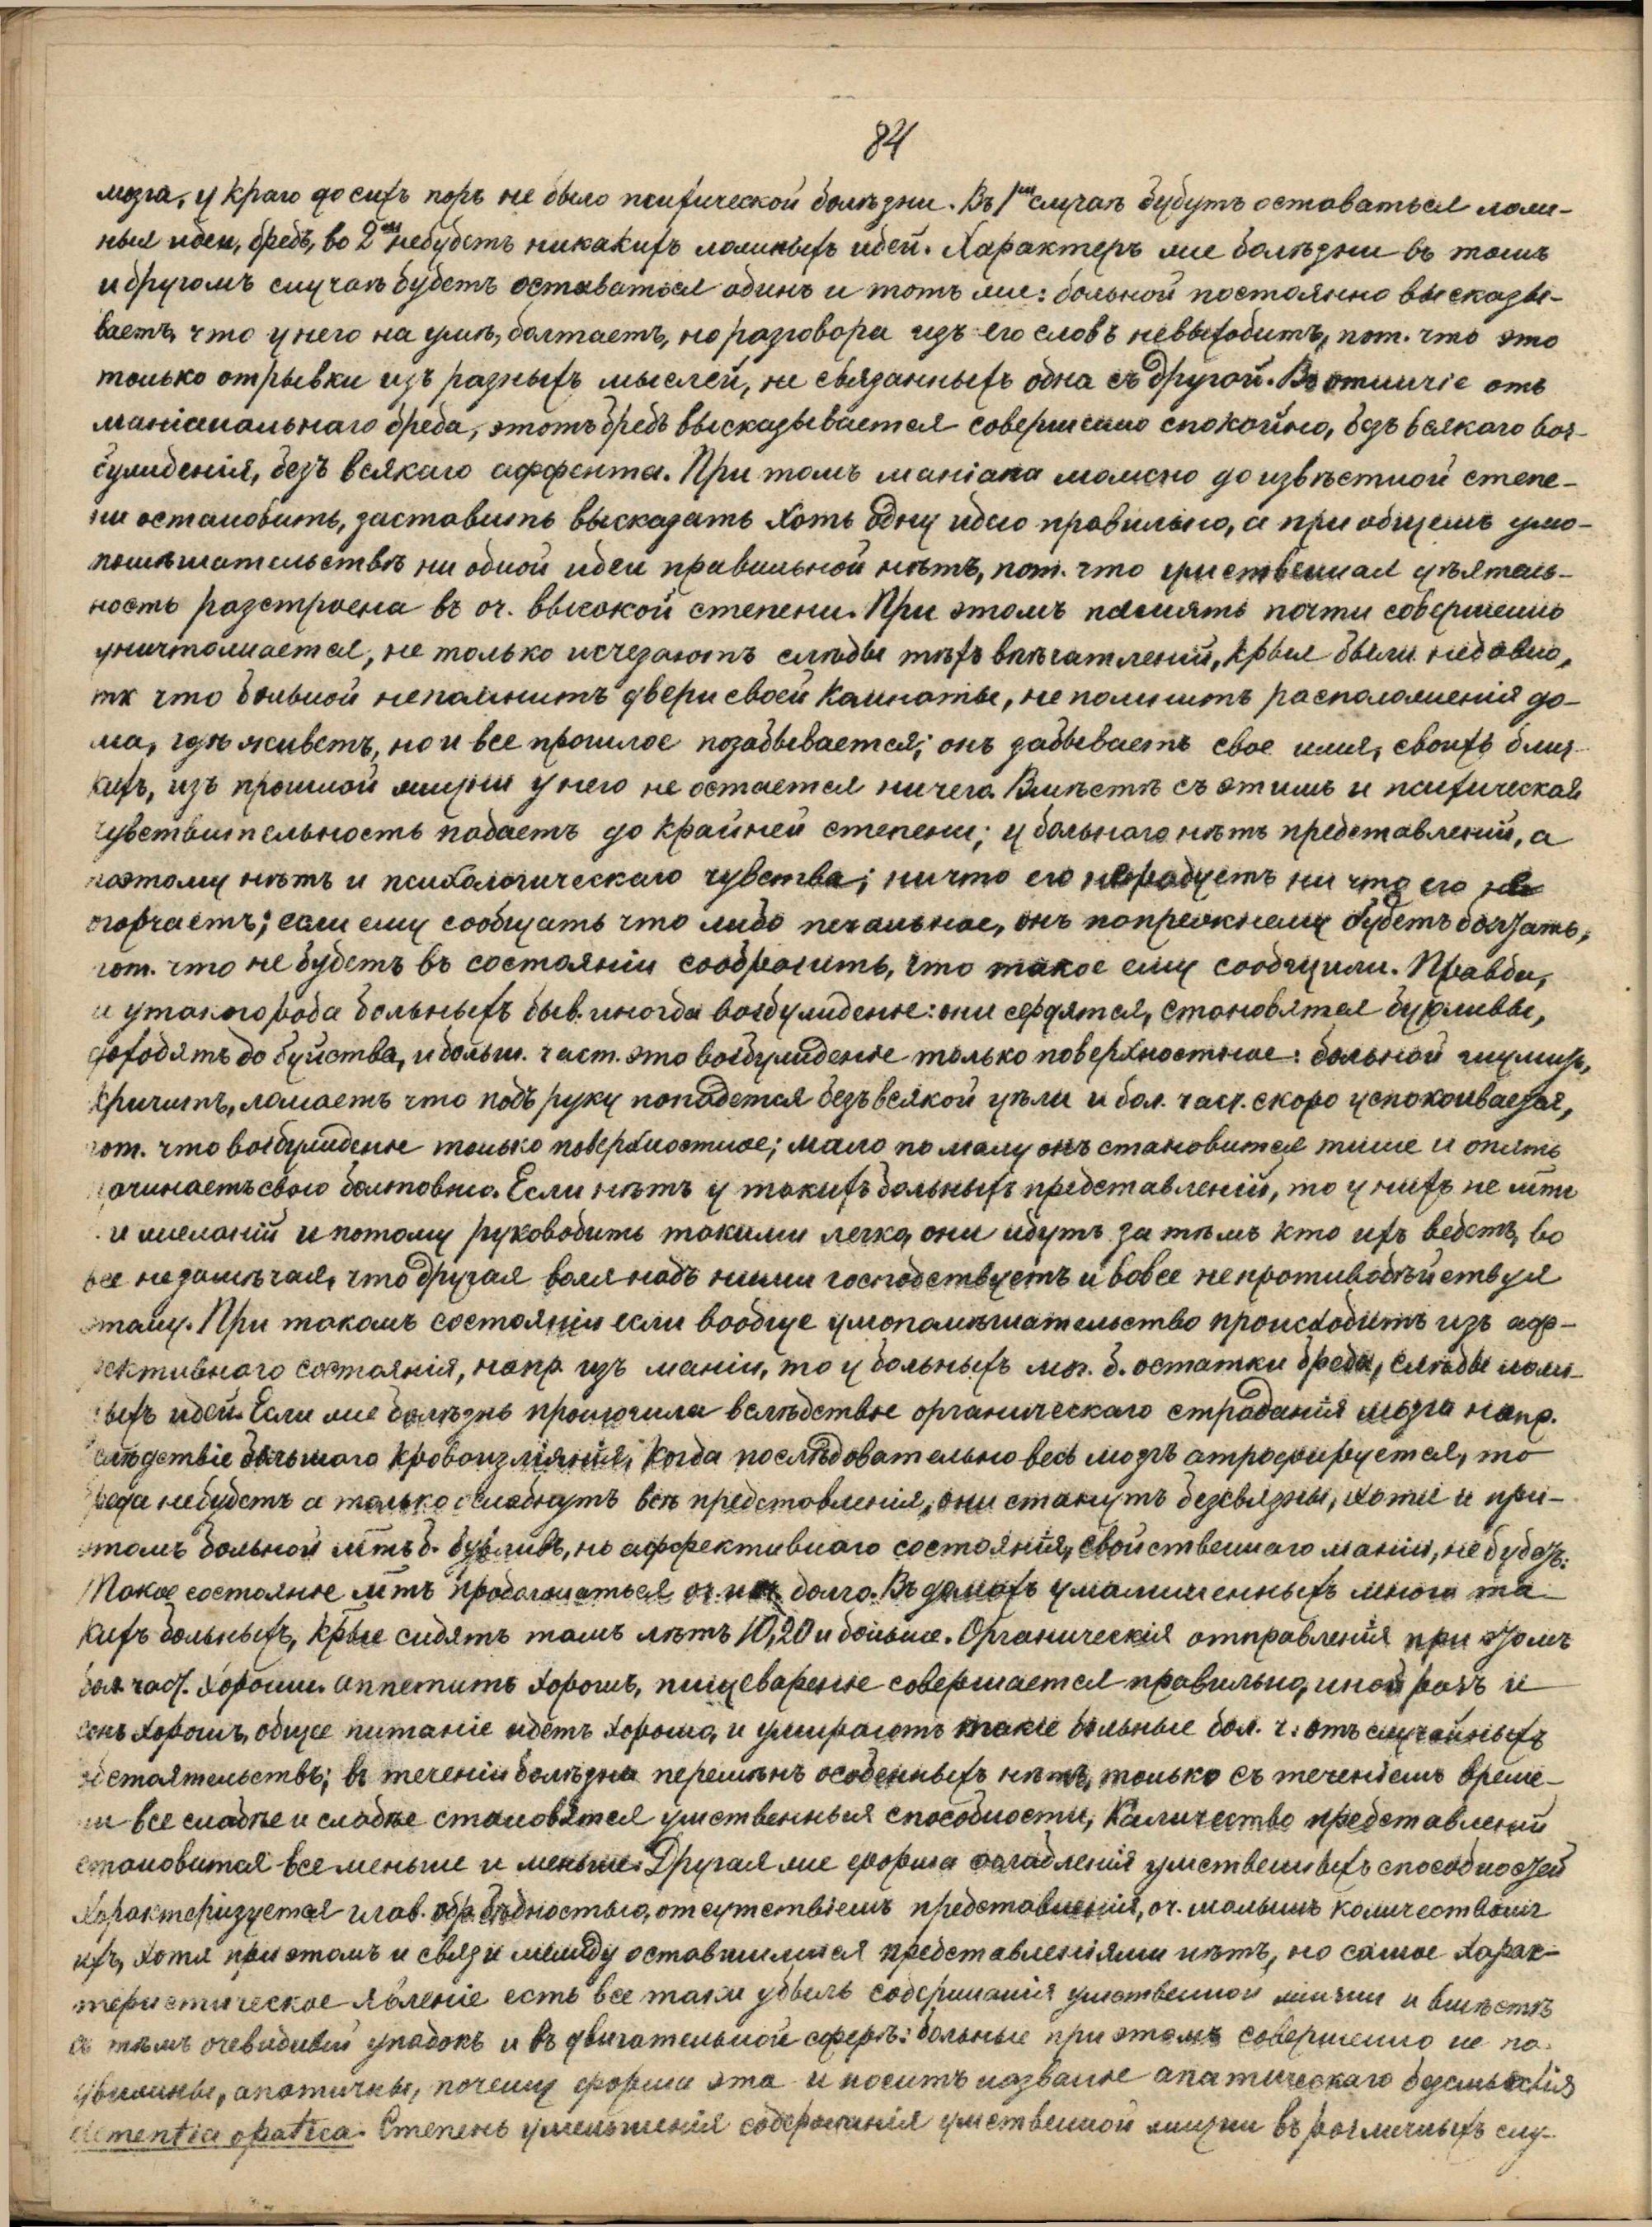 84
мозга, у краго до сихъ поръ не было психической болѣзни. Въ 1мъ случаѣ будутъ оставаться лож-
ныя идеи, бредъ, во 2мъ небудетъ никакихъ ложныхъ идей. Характеръ же болѣзни въ томъ
и другомъ случаѣ будетъ оставаться одинъ и тотъ же: больной постоянно высказы-
ваетъ, что у него на умѣ, болтаетъ, но разговора изъ его словъ невыходитъ, пот. что это
только отрывки изъ разныхъ мыслей, не связанныхъ одна съ другой. Въ отличіе отъ
маніакальнаго бреда, этотъ бредъ высказывается совершенно спокойно, безъ всякаго воз-
бужденія, безъ всякаго аффекта. При томъ маніака можно до извѣстной степе-
ни остановить, заставить высказать хоть одну идею правильно, а при общемъ умо-
помѣшательствѣ ни одной идеи правильной нѣтъ, пот. что умственная дѣятель-
ность разстроена въ оч. высокой степени. При этомъ память почти совершенно
уничтожается, не только исчезаютъ слѣды тѣхъ впѣчатленій, крыя были недавно,
тк что больной непомнитъ двери своей комнаты, не помнитъ расположенія до-
ма, гдѣ живетъ, но и все прошлое позабывается; онъ забываетъ свое имя, своихъ близ-
кихъ, изъ прошлой жизни у него не остается ничего. Вмѣстѣ съ этимъ и психическая
чувствительность падаетъ до крайней степени; у больнаго нѣтъ представленій, а
поэтому нѣтъ и психологическаго чувства; ничто его нерадуетъ ни что его не
огорчаетъ; если ему сообщать что либо печальное, онъ попрежнему будетъ болтать,
пот. что не будетъ въ состояніи сообразить, что такое ему сообщили. Правда,
и у такого рода больныхъ быв. иногда возбужденіе: они сердятся, становятся бурливы,
доходятъ до буйства, и больш. част. это возбужденіе только поверхностное: больной шумитъ,
кричитъ, ломаетъ что подъ руку попадется безъ всякой цѣли и бол. част. скоро успокоивается,
пот. что возбужденіе только поверхностное; мало по малу онъ становится тише и опять
начинаетъ свою болтовню. Если нѣтъ у такихъ больныхъ представленій, то у нихъ не мтъ
и желаній и потому руководить такими легко, они идутъ за тѣмъ кто ихъ ведетъ, во
все незамѣчая, что другая воля надъ ними господствуетъ и вовсе непротиводѣйствуя
этому. При такомъ состояніи если вообще умопомѣшательство происходитъ изъ аф-
фективнаго состоянія, напр. изъ маніи, то у больныхъ мог. б. остатки бреда, слѣды лож-
ныхъ идей. Если же болѣзнь произошла вслѣдствіе органическаго страданія мозга напр.
вслѣдствіе большого кровоизліянія, когда послѣдовательно весь мозгъ атрофируется, то
бреда небудетъ а только ослабнутъ всѣ представленія, они станутъ безсвязны, хотя и при-
этомъ больной мтъ б. бурливъ, но аффективнаго состоянія, свойственнаго маніи, не будетъ.
Такое состояніе мтъ продолжаться оч. долго. Въ домахъ умалишенныхъ много та-
кихъ больныхъ, крые сидятъ тамъ лѣтъ 10, 20 и больше. Органическія отправленія при этомъ
бол. част. хороши. аппетитъ хорошъ, пищевареніе совершается правильно, иной разъ и
сонъ хорошъ, общее питаніе идетъ хорошо, и умираютъ такіе больные бол. ч. отъ случайныхъ
обстоятельствъ; въ теченіи болѣзни перемѣнъ особенныхъ нѣтъ, только съ теченіемъ време-
ни все слабѣе и слабѣе становятся умственныя способности, количество представленій
становится все меньше и меньше. Другая же форма ослабленія умственныхъ способностей
характеризуется глав. обр. бѣдностью, отсутствіемъ представленія, оч. малымъ количествомъ
ихъ, хотя при этомъ и связи между оставшимися представленіями нѣтъ, но самое харак-
теристическое явленіе есть все таки убыль содержанія умственной жизни и вмѣстѣ
съ тѣмъ очевидный упадокъ и въ двигательной сферѣ: больные при этомъ совершенно не по-
движны, апатичны, почему форма эта и носитъ названіе апатическаго безсмыслія
dementia apatica. Степень уменьшенія содержанія умственной жизни въ различныхъ слу-